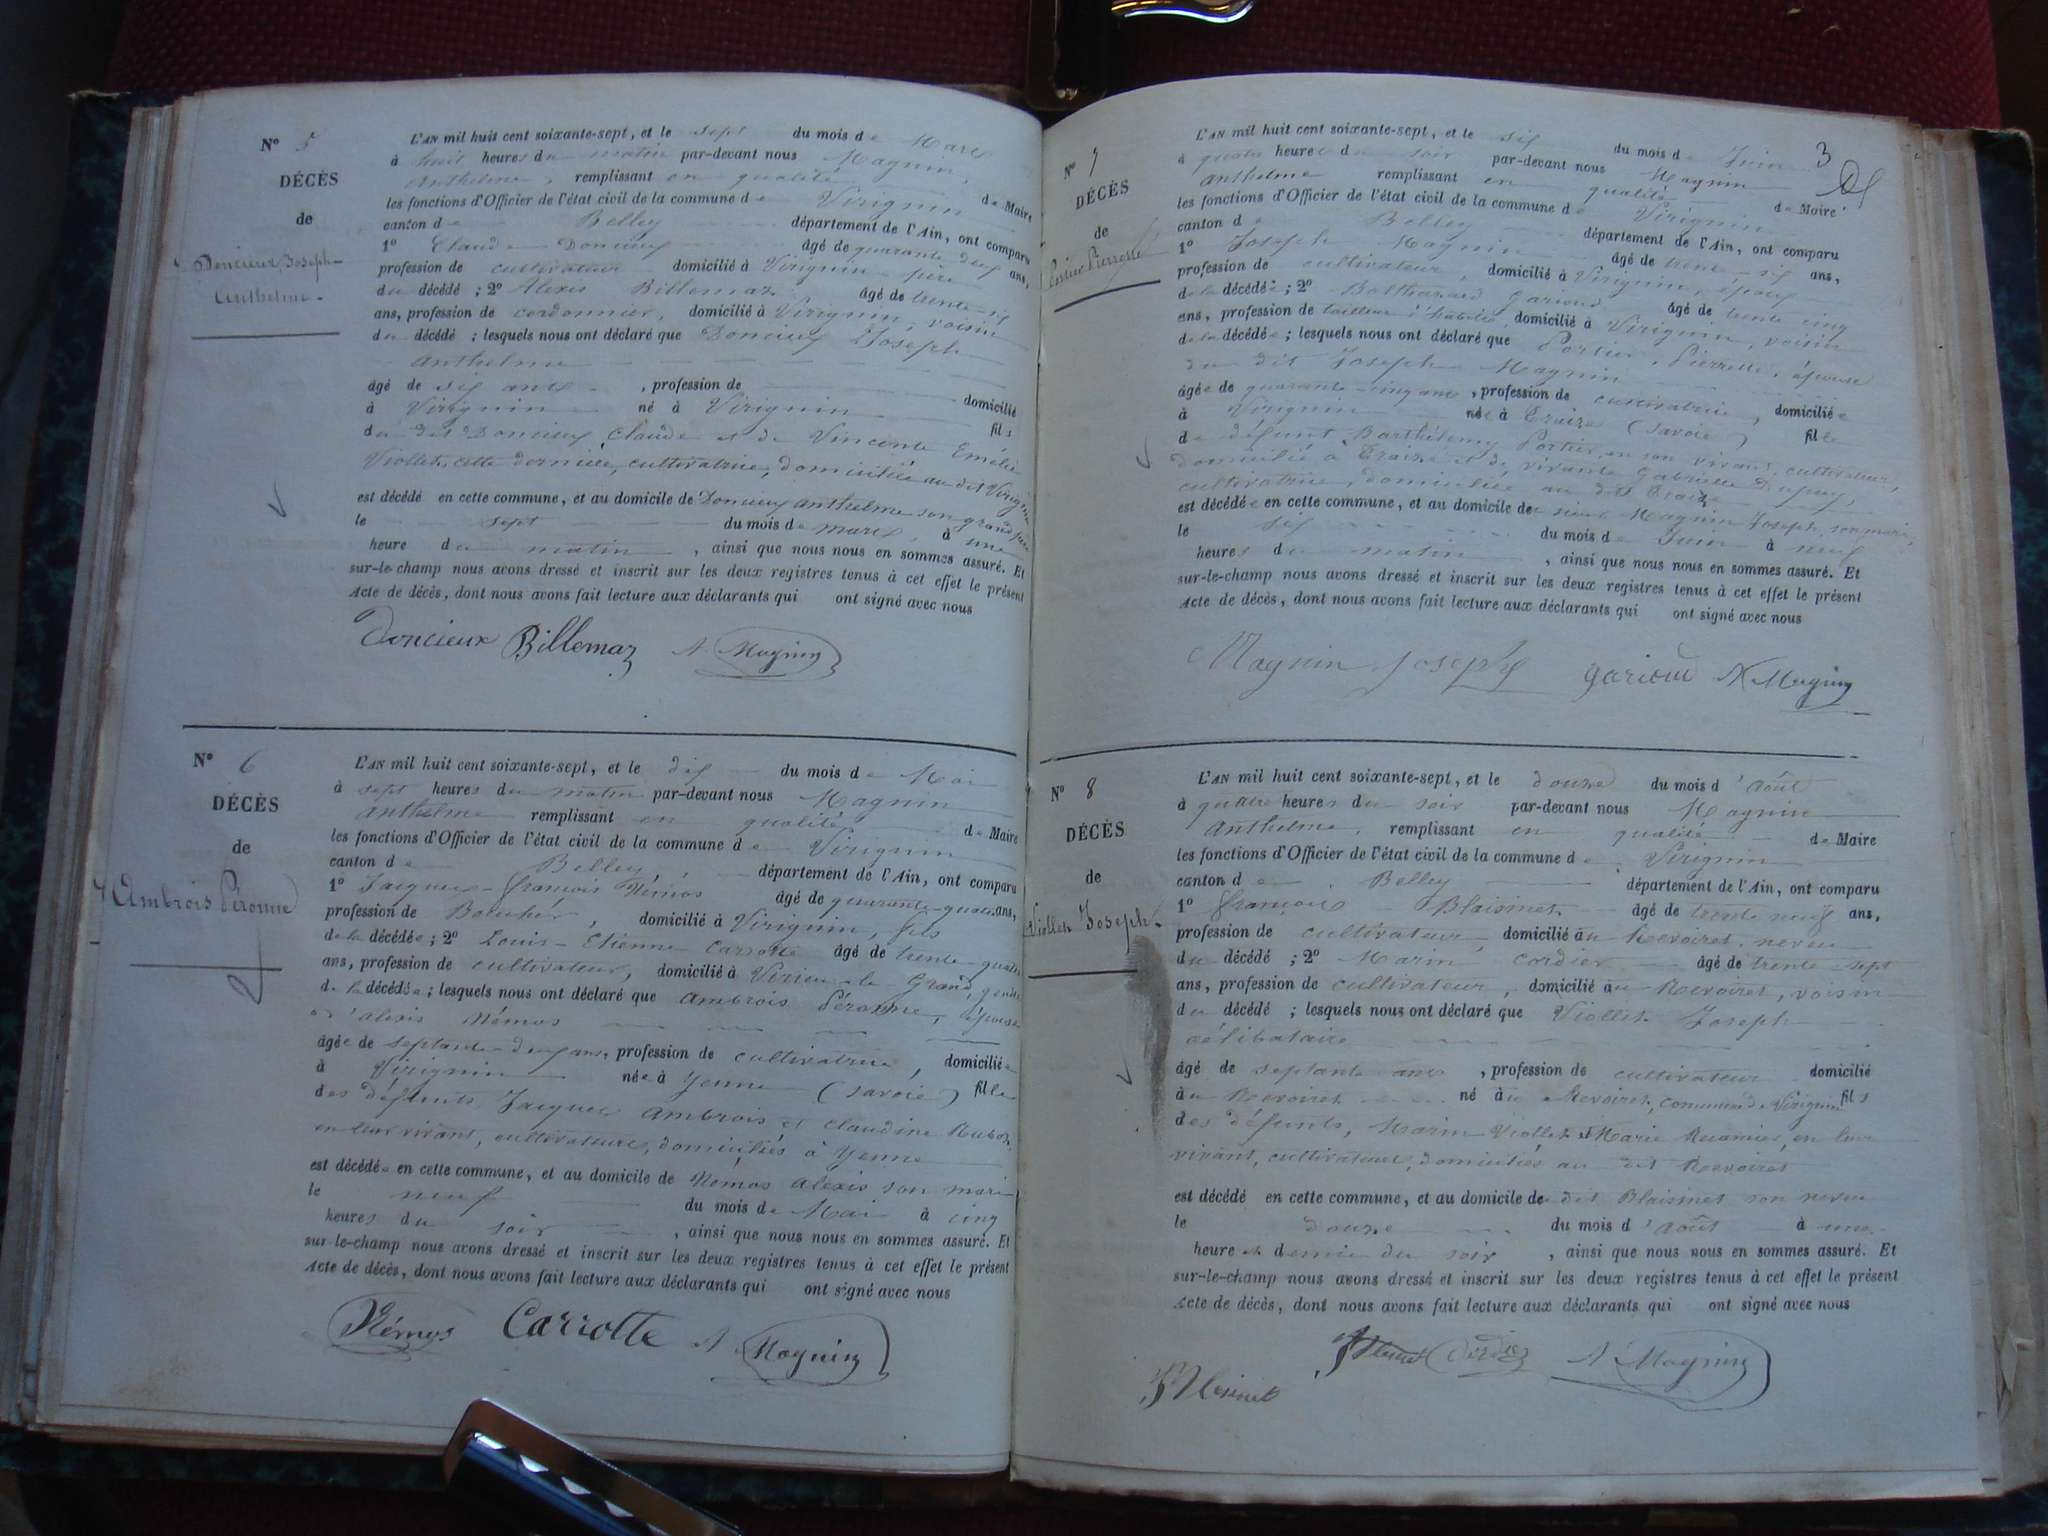 N° 5
DÉCÈS
de
Doncieux Joseph-
Anthelme.
L'AN mil huit cent soixante-sept, et le sept du mois de Mars
à huit heures du matin par-devant nous Magnin,
Anthelme, remplissant en qualité de Maire
les fonctions d'Officier de l'état civil de la commune de Virignin
canton de Belley département de l'Ain, ont comparu
1° Claude Doncieux âgé de quarante deux ans,
profession de cultivateur domicilié à Virignin père
du décédé ; 2° Alexis Billemaz âgé de trente-six
ans, profession de cordonnier, domicilié à Virignin, voisin
du décédé ; lesquels nous ont déclaré que Doncieux Joseph
Anthelme
âgé de six ans , profession de domicilié
à Virignin né à Virignin fils
du dit Doncieux Claude et de Vincente Emélie
Viollet, cette dernière, cultivatrice, domiciliée au dit Virignin
est décédé en cette commune, et au domicile de Doncieux Anthelme son grand père
le sept du mois de mars, à une
heure du matin , ainsi que nous nous en sommes assuré. Et
sur-le-champ nous avons dressé et inscrit sur les deux registres tenus à cet effet le présent
Acte de décès, dont nous avons fait lecture aux déclarants qui ont signé avec nous
Doncieux Billemaz A. Magnin
N° 6
DÉCÈS
de
Ambrois Péronne
L'AN mil huit cent soixante-sept, et le dix du mois de Mai
à sept heures du matin par-devant nous Magnin
Anthelme remplissant en qualité de Maire
les fonctions d'Officier de l'état civil de la commune de Virignin
canton de Belley, département de l'Ain, ont comparu
1° Jacques-François Némos âgé de quarante-quatre ans,
profession de Boucher, domicilié à Virignin, fils
de la décédée ; 2° Louis-Etienne Carrotte âgé de trente quatre
ans, profession de cultivateur, domicilié à Virieu-le Grand, gendre
de la décédée ; lesquels nous ont déclaré que Ambrois Péronne, épouse
d'Alexis Némos
âgée de septante-deux ans, profession de cultivatrice, domiciliée
à Virignin née à Yenne (Savoie) fille
des défunts Jacques Ambrois et Claudine
en leur vivant, cultivateurs, domiciliés à Yenne
est décédée en cette commune, et au domicile de Némos Alexis son mari
le neuf du mois de Mai à cinq
heures du soir , ainsi que nous nous en sommes assuré. Et
sur-le-champ nous avons dressé et inscrit sur les deux registres tenus à cet effet le présent
Acte de décès, dont nous avons fait lecture aux déclarants qui ont signé avec nous
Némos Carrotte A Magnin
3
N° 7
DÉCÈS
de
Portier Pierrette
L'AN mil huit cent soixante-sept, et le six du mois de Juin
à quatre heures du soir par-devant nous Magnin
Anthelme remplissant en qualité de Maire
les fonctions d'Officier de l'état civil de la commune de Virignin
canton de Belley département de l'Ain, ont comparu
1° Joseph Magnin âgé de trente-six ans,
profession de cultivateur, domicilié à Virignin, époux
de la décédée ; 2° Balthazard Garioud âgé de trente cinq
ans, profession de tailleur d'habits, domicilié à Virignin, voisin
de la décédée ; lesquels nous ont déclaré que Portier Pierrette, épouse
du dit Joseph Magnin
âgée de quarante-cinq ans, profession de cultivatrice, domiciliée
à Virignin née à Traize (Savoie) fille
de défunt Barthélemy Portier, en son vivant cultivateur,
domicilié à Traize et de vivante Gabrielle Dupuy,
cultivatrice, domiciliée au dit Traize
est décédée en cette commune, et au domicile de sieur Magnin Joseph, son mari,
le six du mois de Juin à neuf
heures du matin , ainsi que nous nous en sommes assuré. Et
sur-le-champ nous avons dressé et inscrit sur les deux registres tenus à cet effet le présent
Acte de décès, dont nous avons fait lecture aux déclarants qui ont signé avec nous
Magnin Joseph garioud A Magnin
N° 8
DÉCÈS
de
Viollet Joseph
L'AN mil huit cent soixante-sept, et le douze du mois d'août
à quatre heures du soir par-devant nous Magnin
Anthelme, remplissant en qualité de Maire
les fonctions d'Officier de l'état civil de la commune de Virignin
canton de Belley département de l'Ain, ont comparu
1° François Blaisinet âgé de trente neuf ans,
profession de cultivateur, domicilié au Revoiret, neveu
du décédé ; 2° Marin Cordier âgé de trente-sept
ans, profession de cultivateur, domicilié au Revoiret, voisin
du décédé ; lesquels nous ont déclaré que Viollet Joseph
célibataire
âgé de septante ans , profession de cultivateur domicilié
au Revoiret né au Revoiret, commune de Virignin fils
des défunts, Marin Viollet et Marie en leur
vivant, cultivateurs, domiciliés au dit Revoiret
est décédé en cette commune, et au domicile de dit Blaisinet son neveu
le douze du mois d'août à une
heure et demie du soir , ainsi que nous nous en sommes assuré. Et
sur-le-champ nous avons dressé et inscrit sur les deux registres tenus à cet effet le présent
Acte de décès, dont nous avons fait lecture aux déclarants qui ont signé avec nous
Cordier A Magnin